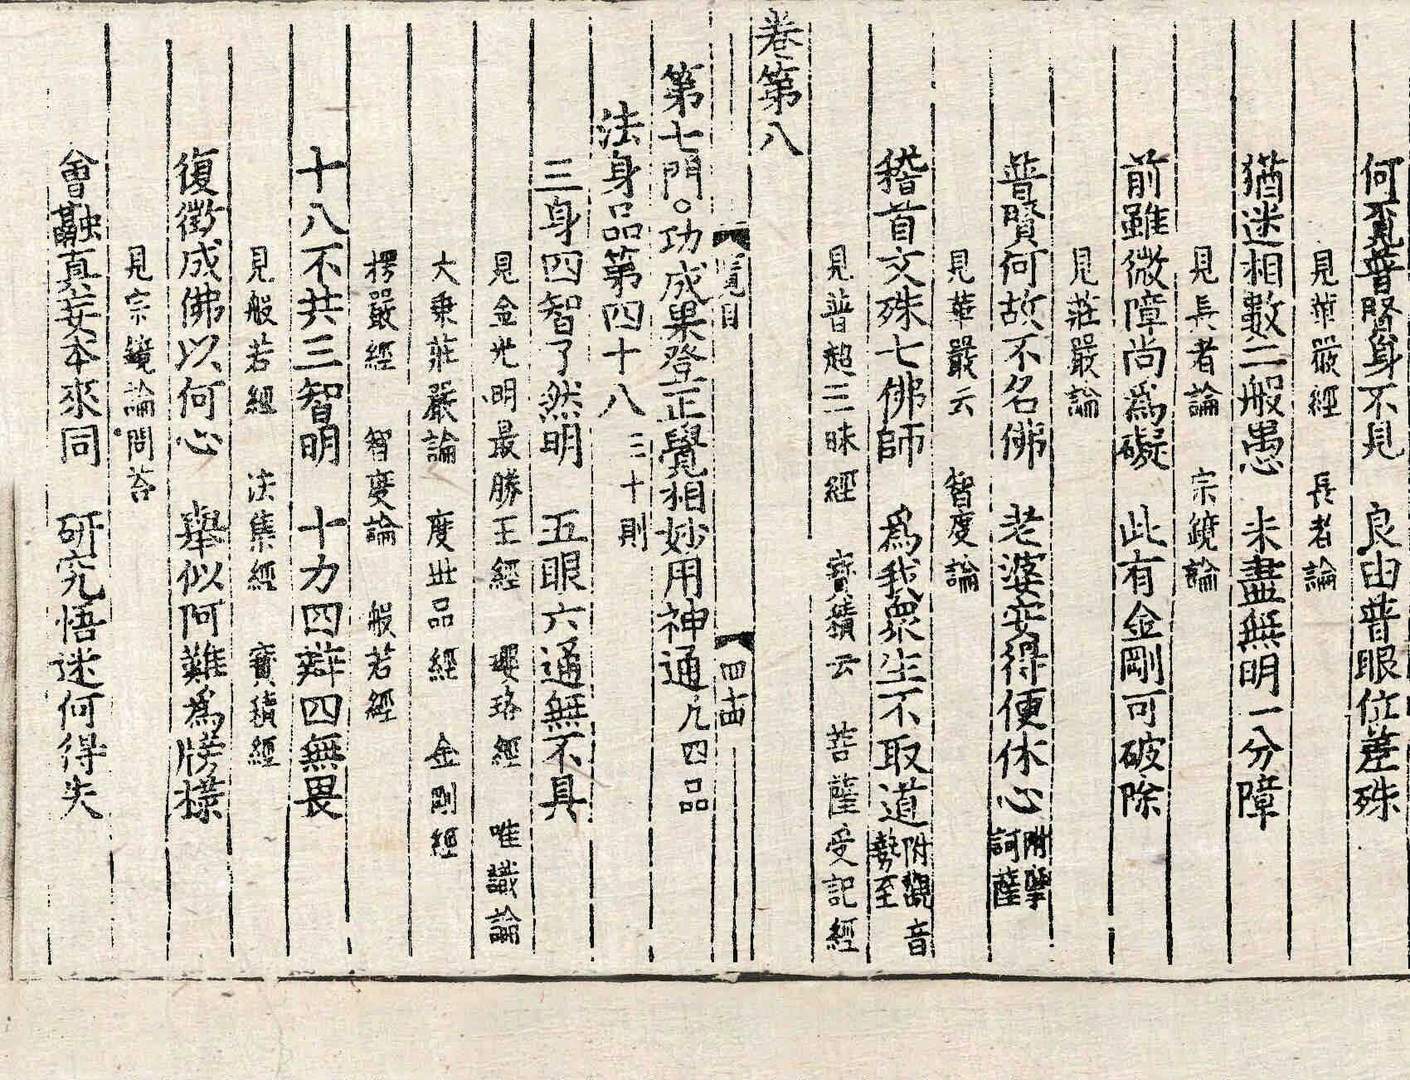 何覓普賢身不見　良由普眼位差殊
見華嚴經　長者論
猶迷相數二般愚　未盡無明一分障
見長者論　宗鏡論
前雖微障尚爲礙　此有金剛可破除
見莊嚴論
普賢何故不名佛　老婆安得便休心 附摩訶薩
見華嚴云　智度論
稽首文殊七佛師　爲我衆生不取道 附觀音勢至
見普超三昧經　寶積云　菩薩受記經
卷第八
覽目　四十四
第七門。功成果登正覺相妙用神通 凡四品
法身品第四十八 三十則
三身四智了然明　五眼六通無不具
見金光明最勝王經　瓔珞經　唯識論
大乘莊嚴論　度世品經　金剛經
楞嚴經　智度論　般若經
十八不共三智明　十力四辯四無畏
見般若經　法集經　寶積經
復徵成佛以何心　舉似阿難爲牓樣
見宗鏡論問荅
會融真妄本來同　研究悟迷何得失